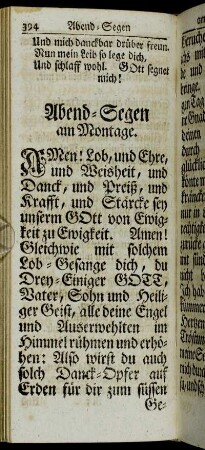 394 Abend-Segen
Und mich danckbar drüber freun.
Nun mein Leib so lege dich,
Und schlaff wohl. GOtt segnet
mich!
Abend-Segen
am Montage.
AMen! Lob, und Ehre,
und Weisheit, und
Danck, und Preiß, und
Krafft, und Stärcke sey
unserm GOtt von Ewig-
keit zu Ewigkeit. Amen!
Gleichwie mit solchem
Lob-Gesange dich, du
Drey-Einiger GOTT,
Vater, Sohn und Heili-
ger Geist, alle deine Engel
und Auserwehlten im
Himmel rühmen und erhö-
hen: Also wirst du auch
solch Danck-Opfer auf
Erden für dir zum süssen
Ge-